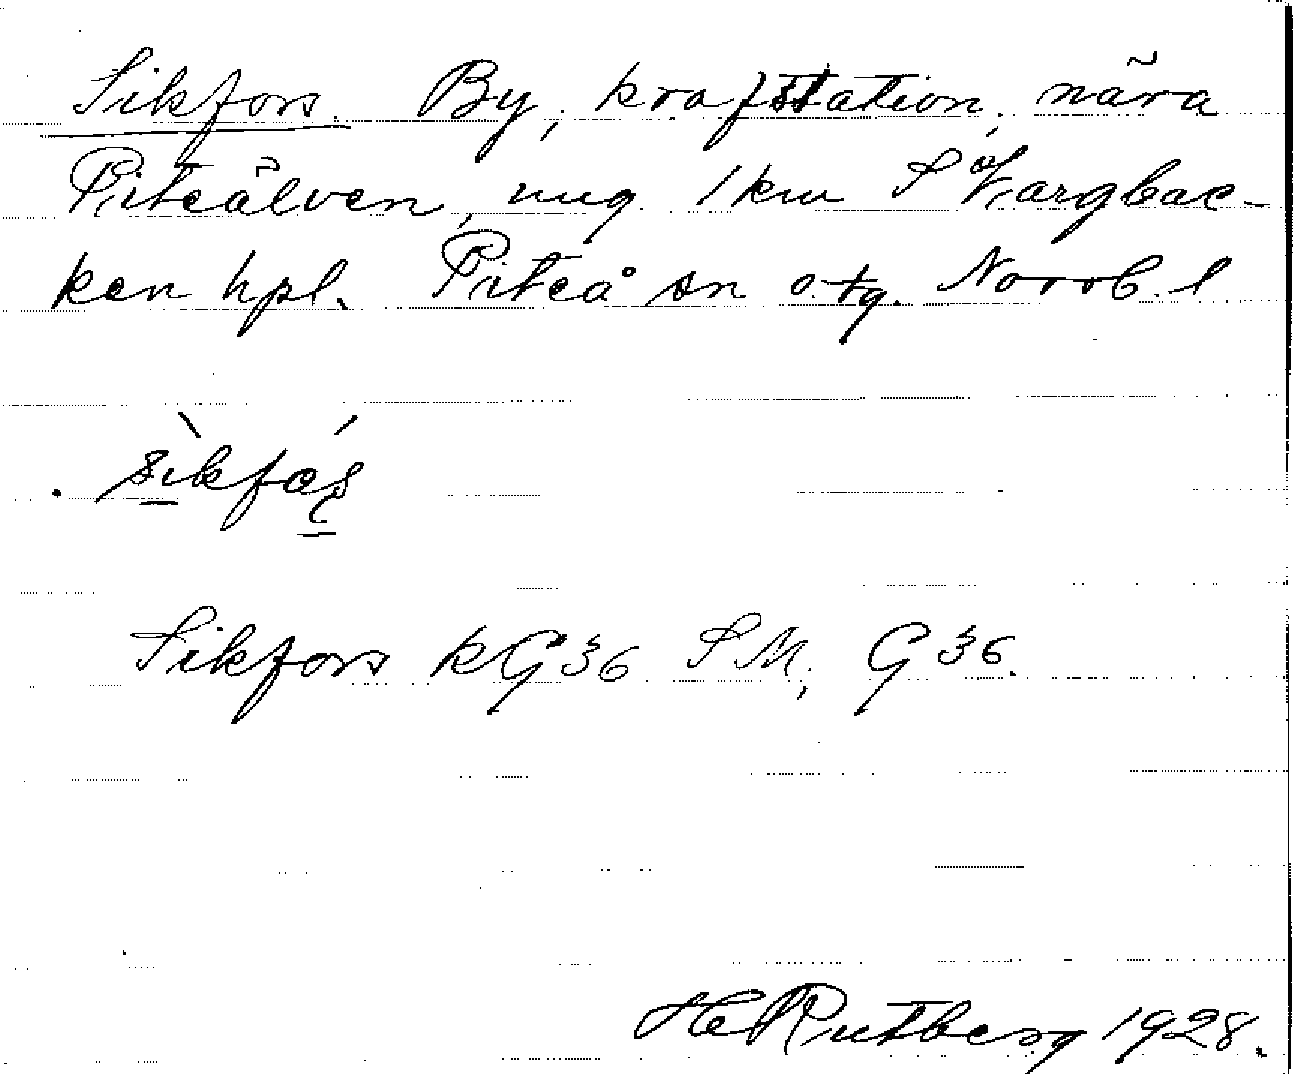 Sikfors. By, kraftstation, nära
Piteälven, ung. 1 km S af Vargbac-
ken hpl. Piteå sn o. tg. Norrb. l
sikfos
Sikfors kG36 SM, G36.
HRutberg 1928.